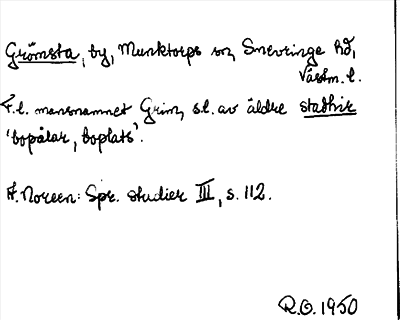 Grömsta, by, Munktorps sn, Snevringe hd,
Västm. l.
F.l. mansnamnet Grim, s.l. av äldre stadhir
'bopålar, boplats'.
A. Noreen: Spr. studier III, s. 112.
R.O. 1950